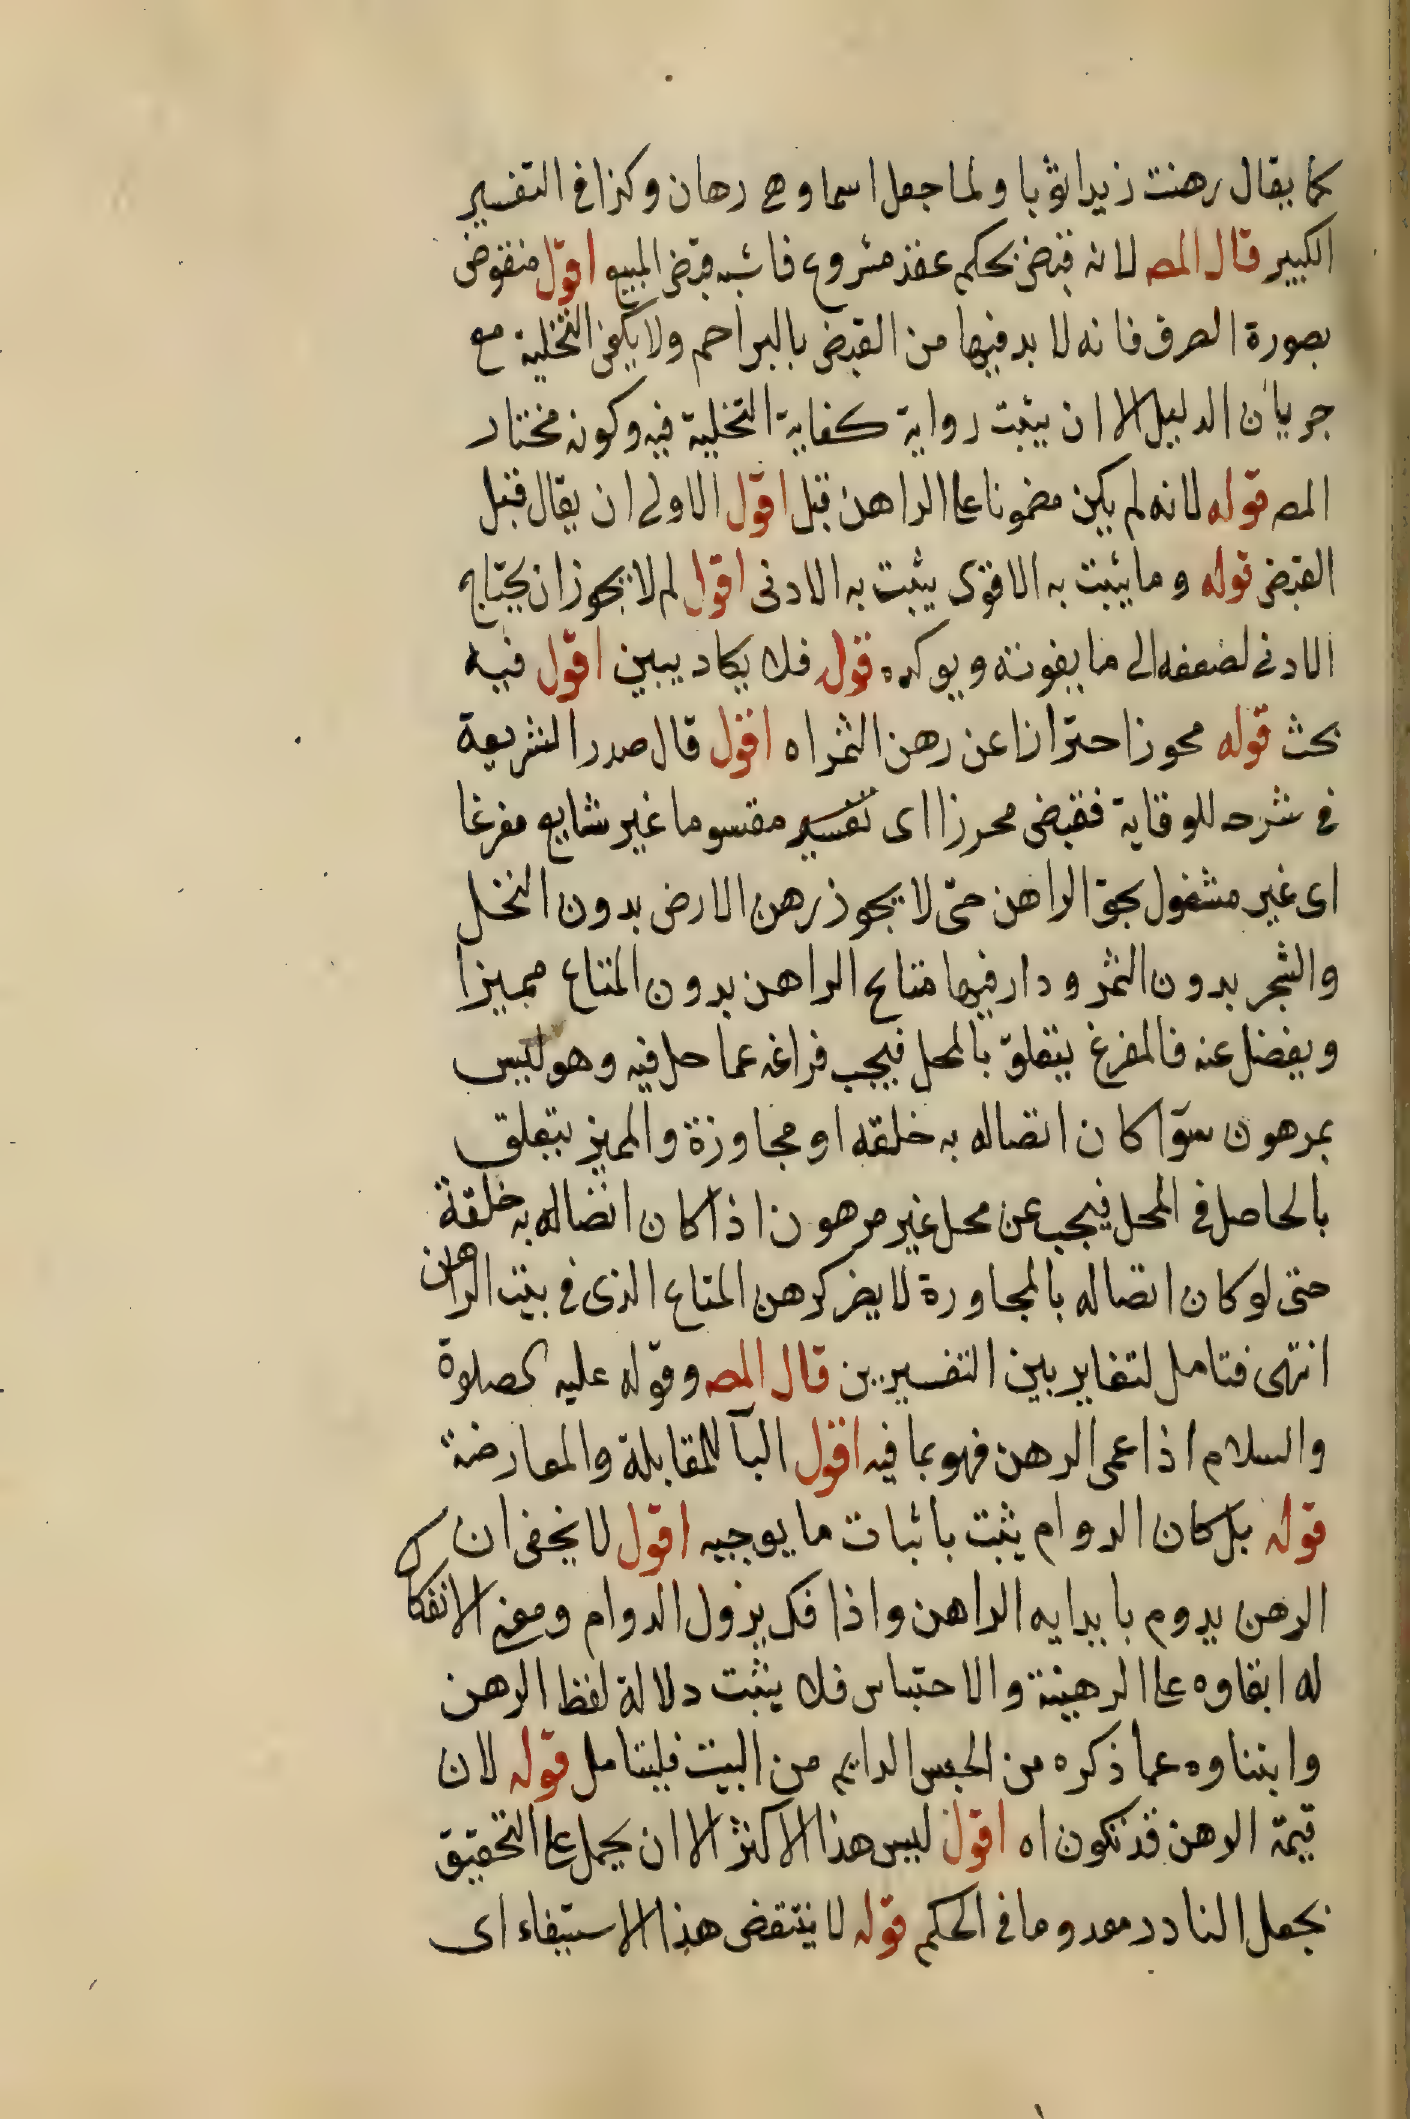 كما يقال رهنت زيدا ثوبا ولما جعل اسما وهى رهان وكذا فى التفسير
الكبير قال المص لانه قبض بحكم عقد مشروع فاشبه قبض المبيع اقول منقوض
بصورة الصرف فانه لا بد فيها من القبض بالبراجم ولا يكفى التخلية مع
جريان الدليل الا ان يثبت رواية كفاية التخلية فيه وكونه مختار
المص قوله لانه لم يكن مضمونا على الراهن قبل اقول الاولى ان يقال قبل
القبض قوله وما يثبت به الاقوى يثبت به الادنى اقول لم لا يجوز ان يحتاج
الادنى لضعفه الى ما يقويه ويوكده قوله فلا يكاد يبين اقول فيه
بحث قوله محوزا احترازا عن رهن الثمر اه اقول قال صدر الشريعة
فى شرحه للوقاية فقبض محرزا اى تفسير مقسوما غير شايع مفرغا
اى غير مشغول بحق الراهن حتى لا يجوز رهن الارض بدون النخل
والشجر بدون الثمر ودار فيها متاع الراهن بدون المتاع مميزا
ويفضل عنه فالمفرغ يتعلق بالمحل فيجب فراغه عما حل فيه وهو ليس
بمرهون سوآ كان اتصاله به خلقه او مجاوزة والمميز يتعلق
بالحاصل فى المحل فيجب عن محل غير مرهون اذا كان اتصاله به خلقة
حتى لو كان اتصاله بالمجاورة لا يضر كرهن المتاع الذى فى بيت الراهن
انتهى فتامل لتغاير بين التفسيرين قال المص وقوله عليه الصلاوة
والسلام اذا عمى الرهن فهو بما فيه اقول البآ للمقابلة والمعارضة
قوله بل كان الدوام يثبت باثبات ما يوجبه اقول لا يخفى ان
الرهن يدوم بابدايه الراهن واذا فك يزول الدوام ومعنى الانفكاك
له ابقاوه على الرهينة والاحتباس فلا يثبت دلالة لفظ الرهن
وابتناوه عما ذكره من الحبس الدايم من البيت فليتامل قوله لان
قيمة الرهن قد تكون اه اقول ليس هذا الاكثر الا ان يحمل على التحقيق
بجعل النادر معدوما فى الحكم قوله لا ينتقض هذا الاستيفاء اى